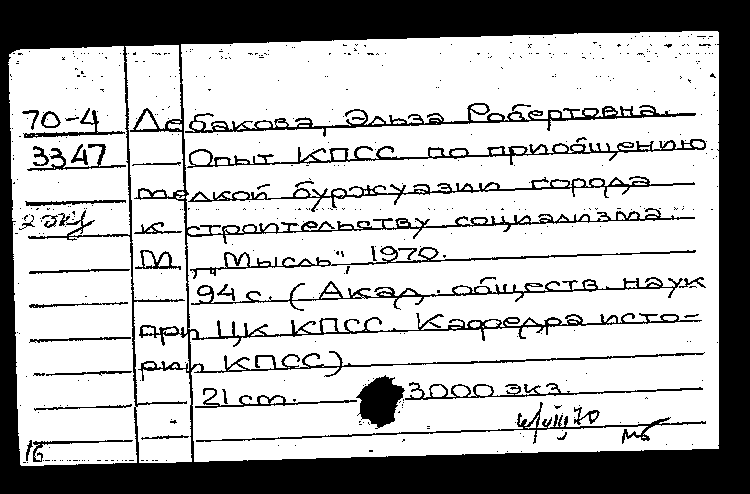 70-4 Лебакова, Эльза Робертовна.
3347 Опыт КПСС по приобщению
мелкой буржуазии города
2 экз к строительству социализма.
М., „Мысль", 1970.
94 с. (Акад. обществ. наук
при ЦК КПСС. Кафедра исто-
рии КПСС).
21 cm. 3000 экз.
мб
16